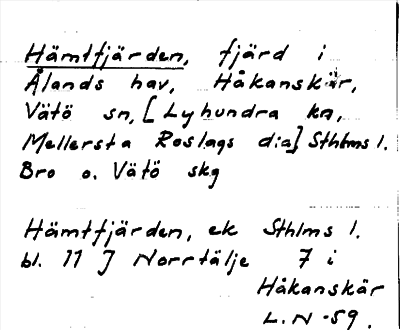 Hämtfjärden, fjärd i
Ålands hav, Håkanskär,
Vätö sn, [Lyhundra kn,
Mellersta Roslags d:a] Sthlms l.
Bro o. Vätö skg
Hämtfjärden, ek Sthlms l.
bl. 11 J Norrtälje 7 i
Håkanskär
L.N -59.